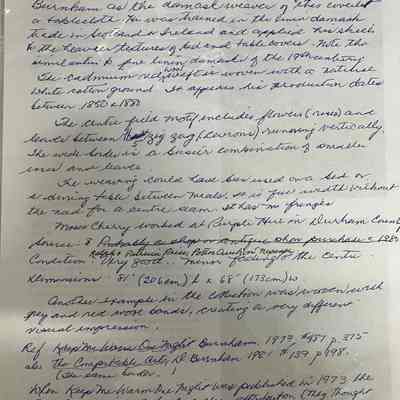 Burnham as the damask weaver of this coverlet
a tablecloth. He was trained in the linen damask
trade in Scotland & Ireland and applied his skills
to the heavier textures of bed and table covers. Note the
similarities to fine linen damasks of the 19th century
The cadmium red wool weft is woven with a
white cotton ground. It appears his production dates
between 1850 & 1880
The centre field motif includes flowers (roses) and
leaves between zig zag (chevrons) running vertically.
The wide border is a basic combination of smaller
roses and leaves.
The weaving could have been used on a bed or
a dining table between meals. It is full width without
the need for a centre seam. It has no fringes
Moses Cherry worked at Purple Hill in Durham County
Source: Probably a shop or antique show purchase 1980
Ralph & Patricia Price,
Condition: Very good. minor fading to the centre
Dimensions: 81" (206cm) L x 68" (173cm) w
Another example in the collection was woven with
grey and red wool bands, creating a very different
visual impression.
Ref: Keep Me Warm One Night Burnham, 1973, #451 p. 375
also The Comfortable Arts, D. Burnham 1981 #137 p 98.
(The same border.)
Keep Me Warm One Night was published in 1973 the
(They thought